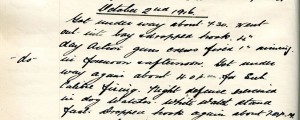 October 2nd 1916
Got under way about 7.30. Went
out into bay dropped hook. 4"
-do- day Action guns crews fired 1" aiming
in forenoon & afternoon. Got under
way again about 4 o/c for Sub
calibre firing. Night defence exercised
in dog watches. While Watch stand
fast. Dropped hook again about 7.30 p.m.